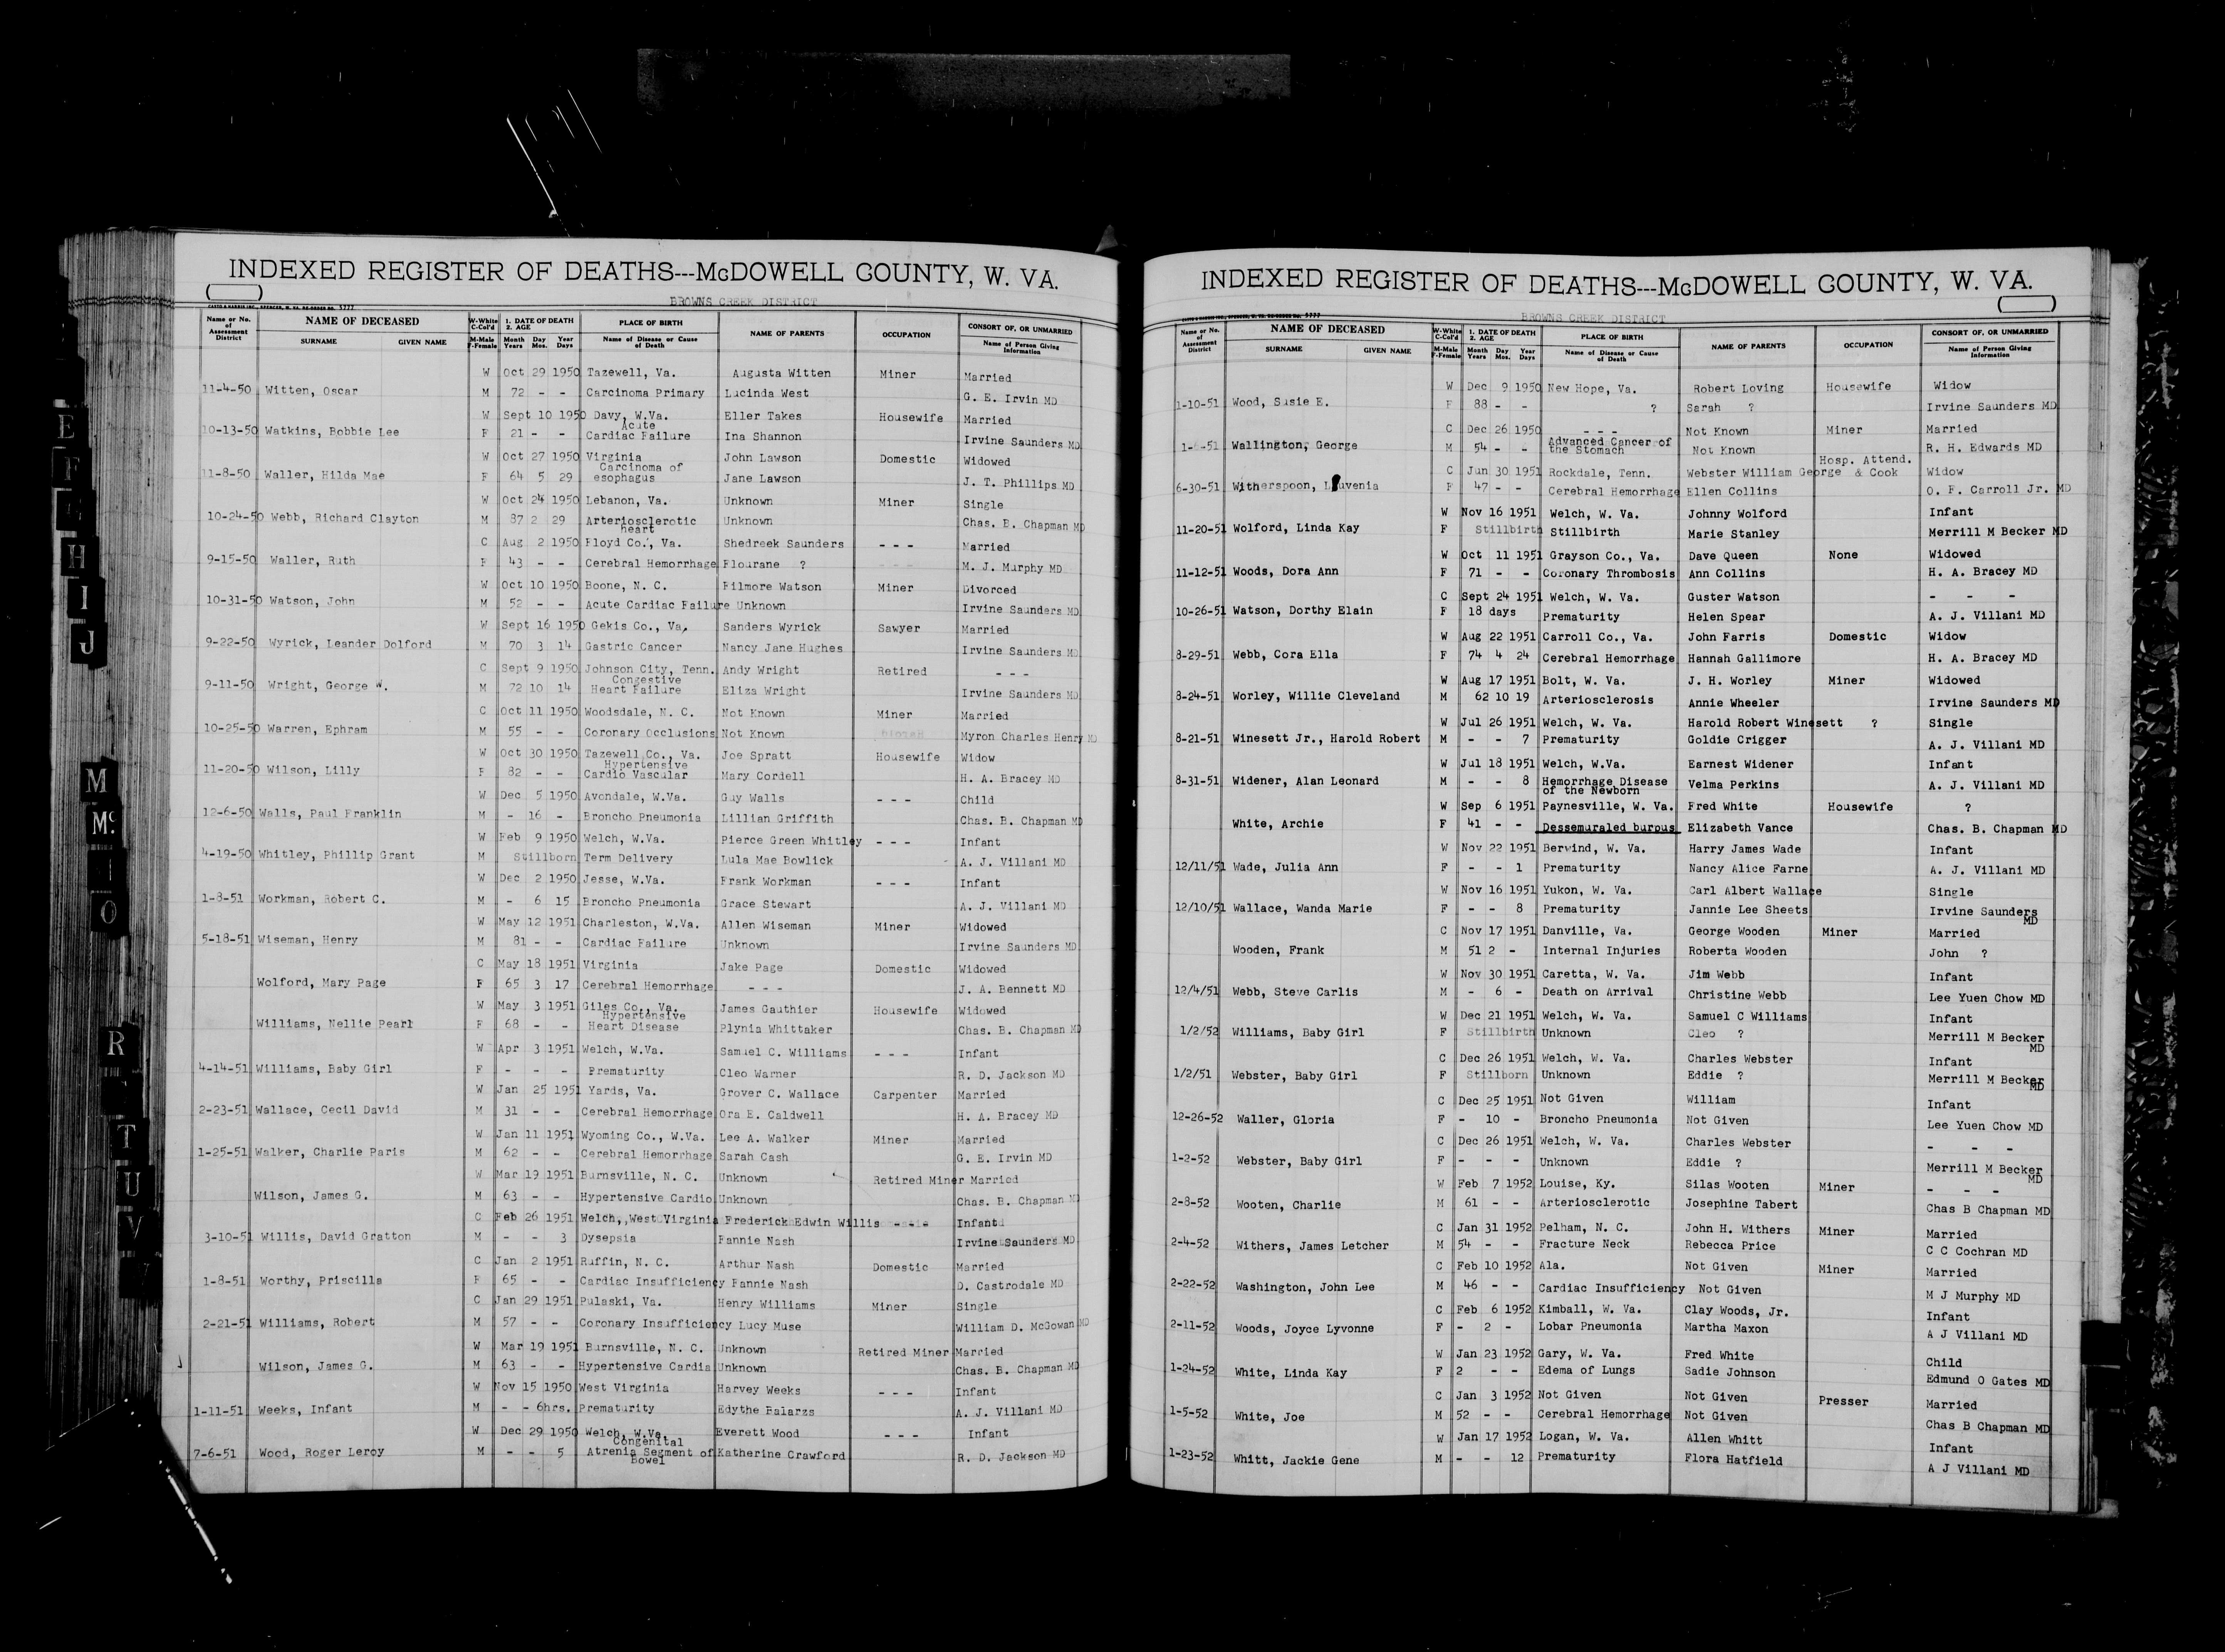 INDEXED REGISTER OF DEATHS---McDOWELL COUNTY, W. VA.
BROWNS CREEK DISTRICT
Name or No. of Assessment District | NAME OF DECEASED SURNAME GIVEN NAME | W-White C-Col'd M-Male F-Female | 1. DATE OF DEATH 2. AGE Month Day Year Years Mos. Days | PLACE OF BIRTH Name of Disease or Cause of Death | NAME OF PARENTS | OCCUPATION | CONSORT OF, OR UNMARRIED Name of Person Giving Information
W Oct 29 1950 Tazewell, Va. Augusta Witten Miner Married
11-4-50 Witten, Oscar M 72 - - Carcinoma Primary Lucinda West G. E. Irvin MD
W Sept 10 1950 Davy, W.Va. Eller Takes Housewife Married
10-13-50 Watkins, Bobbie Lee F 21 - - Acute Cardiac Failure Ina Shannon Irvine Saunders MD
W Oct 27 1950 Virginia John Lawson Domestic Widowed
11-8-50 Waller, Hilda Mae F 64 5 29 Carcinoma of esophagus Jane Lawson J. T. Phillips MD
W Oct 24 1950 Lebanon, Va. Unknown Miner Single
10-24-50 Webb, Richard Clayton M 87 2 29 Arteriosclerotic heart Unknown Chas. B. Chapman MD
C Aug 2 1950 Floyd Co., Va. Shedreek Saunders - - - Married
9-15-50 Waller, Ruth F 43 - - Cerebral Hemorrhage Flourane ? - - - M. J. Murphy MD
W Oct 10 1950 Boone, N. C. Filmore Watson Miner Divorced
10-31-50 Watson, John M 52 - - Acute Cardiac Failure Unknown Irvine Saunders MD
W Sept 16 1950 Gekis Co., Va. Sanders Wyrick Sawyer Married
9-22-50 Wyrick, Leander Dolford M 70 3 14 Gastric Cancer Nancy Jane Hughes Irvine Saunders MD
C Sept 9 1950 Johnson City, Tenn. Andy Wright Retired - - -
9-11-50 Wright, George W. M 72 10 14 Congestive Heart Failure Eliza Wright Irvine Saunders MD
C Oct 11 1950 Woodsdale, N. C. Not Known Miner Married
10-25-50 Warren, Ephram M 55 - - Coronary Occlusions Not Known Myron Charles Henry MD
W Oct 30 1950 Tazewell Co., Va. Joe Spratt Housewife Widow
11-20-50 Wilson, Lilly F 82 - - Hypertensive Cardio Vascular Mary Cordell H. A. Bracey MD
W Dec 5 1950 Avondale, W.Va. Guy Walls - - - Child
12-6-50 Walls, Paul Franklin M - 16 - Broncho Pneumonia Lillian Griffith Chas. B. Chapman MD
W Feb 9 1950 Welch, W.Va. Pierce Green Whitley - - - Infant
4-19-50 Whitley, Phillip Grant M Stillborn Term Delivery Lula Mae Bowlick A. J. Villani MD
W Dec 2 1950 Jesse, W.Va. Frank Workman - - - Infant
1-8-51 Workman, Robert C. M - 6 15 Broncho Pneumonia Grace Stewart A. J. Villani MD
W May 12 1951 Charleston, W.Va. Allen Wiseman Miner Widowed
5-18-51 Wiseman, Henry M 81 - - Cardiac Failure Unknown Irvine Saunders MD
C May 18 1951 Virginia Jake Page Domestic Widowed
Wolford, Mary Page F 65 3 17 Cerebral Hemorrhage - - - J. A. Bennett MD
W May 3 1951 Giles Co., Va. James Gauthier Housewife Widowed
Williams, Nellie Pearl F 68 - - Hypertensive Heart Disease Plynia Whittaker Chas. B. Chapman MD
W Apr 3 1951 Welch, W.Va. Samuel C. Williams - - - Infant
4-14-51 Williams, Baby Girl F - - - Prematurity Cleo Warner R. D. Jackson MD
W Jan 25 1951 Yards, Va. Grover C. Wallace Carpenter Married
2-23-51 Wallace, Cecil David M 31 - - Cerebral Hemorrhage Ora E. Caldwell H. A. Bracey MD
W Jan 11 1951 Wyoming Co., W.Va. Lee A. Walker Miner Married
1-25-51 Walker, Charlie Paris M 62 - - Cerebral Hemorrhage Sarah Cash G. E. Irvin MD
W Mar 19 1951 Burnsville, N. C. Unknown Retired Miner Married
Wilson, James G. M 63 - - Hypertensive Cardio Unknown Chas. B. Chapman MD
C Feb 26 1951 Welch, West Virginia Frederick Edwin Willis - - - Infant
3-10-51 Willis, David Gratton M - - 3 Dysepsia Fannie Nash Irvine Saunders MD
C Jan 2 1951 Ruffin, N. C. Arthur Nash Domestic Married
1-8-51 Worthy, Priscilla F 65 - - Cardiac Insufficiency Fannie Nash D. Castrodale MD
C Jan 29 1951 Pulaski, Va. Henry Williams Miner Single
2-21-51 Williams, Robert M 57 - - Coronary Insufficiency Lucy Muse William D. McGowan MD
W Mar 19 1951 Burnsville, N. C. Unknown Retired Miner Married
Wilson, James G. M 63 - - Hypertensive Cardia Unknown Chas. B. Chapman MD
W Nov 15 1950 West Virginia Harvey Weeks - - - Infant
1-11-51 Weeks, Infant M - - 6hrs. Prematurity Edythe Balarzs A. J. Villani MD
W Dec 29 1950 Welch, W.Va. Everett Wood - - - Infant
7-6-51 Wood, Roger Leroy M - - 5 Congenital Atrenia Segment of Bowel Katherine Crawford R. D. Jackson MD
E
F
H
I
J
M
Mc
O
R
T
U
V
INDEXED REGISTER OF DEATHS---McDOWELL COUNTY, W. VA.
BROWNS CREEK DISTRICT
Name or No. of Assessment District | NAME OF DECEASED SURNAME GIVEN NAME | W-White C-Col'd M-Male F-Female | 1. DATE OF DEATH 2. AGE Month Day Year Years Mos. Days | PLACE OF BIRTH Name of Disease or Cause of Death | NAME OF PARENTS | OCCUPATION | CONSORT OF, OR UNMARRIED Name of Person Giving Information
W Dec 9 1950 New Hope, Va. Robert Loving Housewife Widow
1-10-51 Wood, Susie E. F 88 - - ? Sarah ? Irvine Saunders MD
C Dec 26 1950 - - - Not Known Miner Married
Wallington, George M 54 - - Advanced Cancer of the Stomach Not Known R. H. Edwards MD
C Jun 30 1951 Rockdale, Tenn. Webster William George Hosp. Attend. & Cook Widow
6-30-51 Witherspoon, L uvenia F 47 - - Cerebral Hemorrhage Ellen Collins O. F. Carroll Jr. MD
W Nov 16 1951 Welch, W. Va. Johnny Wolford Infant
11-20-51 Wolford, Linda Kay F Stillbirth Stillbirth Marie Stanley Merrill M Becker MD
W Oct 11 1951 Grayson Co., Va. Dave Queen None Widowed
11-12-51 Woods, Dora Ann F 71 - - Coronary Thrombosis Ann Collins H. A. Bracey MD
C Sept 24 1951 Welch, W. Va. Guster Watson - - -
10-26-51 Watson, Dorthy Elain F 18 days Prematurity Helen Spear A. J. Villani MD
W Aug 22 1951 Carroll Co., Va. John Farris Domestic Widow
8-29-51 Webb, Cora Ella F 74 4 24 Cerebral Hemorrhage Hannah Gallimore H. A. Bracey MD
W Aug 17 1951 Bolt, W. Va. J. H. Worley Miner Widowed
8-24-51 Worley, Willie Cleveland M 62 10 19 Arteriosclerosis Annie Wheeler Irvine Saunders MD
W Jul 26 1951 Welch, W. Va. Harold Robert Winesett ? Single
8-21-51 Winesett Jr., Harold Robert M - - 7 Prematurity Goldie Crigger A. J. Villani MD
W Jul 18 1951 Welch, W.Va. Earnest Widener Infant
8-31-51 Widener, Alan Leonard M - - 8 Hemorrhage Disease of the Newborn Velma Perkins A. J. Villani MD
W Sep 6 1951 Paynesville, W. Va. Fred White Housewife ?
White, Archie F 41 - - Dessemuraled burpus Elizabeth Vance Chas. B. Chapman MD
W Nov 22 1951 Berwind, W. Va. Harry James Wade Infant
12/11/51 Wade, Julia Ann F - - 1 Prematurity Nancy Alice Farne A. J. Villani MD
W Nov 16 1951 Yukon, W. Va. Carl Albert Wallace Single
12/10/51 Wallace, Wanda Marie F - - 8 Prematurity Jannie Lee Sheets Irvine Saunders MD
C Nov 17 1951 Danville, Va. George Wooden Miner Married
Wooden, Frank M 51 2 - Internal Injuries Roberta Wooden John ?
W Nov 30 1951 Caretta, W. Va. Jim Webb Infant
12/4/51 Webb, Steve Carlis M - 6 - Death on Arrival Christine Webb Lee Yuen Chow MD
W Dec 21 1951 Welch, W. Va. Samuel C Williams Infant
1/2/52 Williams, Baby Girl F Stillbirth Unknown Cleo ? Merrill M Becker MD
C Dec 26 1951 Welch, W. Va. Charles Webster Infant
1/2/51 Webster, Baby Girl F Stillborn Unknown Eddie ? Merrill M Becker MD
C Dec 25 1951 Not Given William Infant
12-26-52 Waller, Gloria F - 10 - Broncho Pneumonia Not Given Lee Yuen Chow MD
C Dec 26 1951 Welch, W. Va. Charles Webster - - -
1-2-52 Webster, Baby Girl F - - - Unknown Eddie ? Merrill M Becker MD
W Feb 7 1952 Louise, Ky. Silas Wooten Miner - - -
2-8-52 Wooten, Charlie M 61 - - Arteriosclerotic Josephine Tabert Chas B Chapman MD
C Jan 31 1952 Pelham, N. C. John H. Withers Miner Married
2-4-52 Withers, James Letcher M 54 - - Fracture Neck Rebecca Price C C Cochran MD
C Feb 10 1952 Ala. Not Given Miner Married
2-22-52 Washington, John Lee M 46 - - Cardiac Insufficiency Not Given M J Murphy MD
C Feb 6 1952 Kimball, W. Va. Clay Woods, Jr. Infant
2-11-52 Woods, Joyce Lyvonne F - 2 - Lobar Pneumonia Martha Maxon A J Villani MD
W Jan 23 1952 Gary, W. Va. Fred White Child
1-24-52 White, Linda Kay F 2 - - Edema of Lungs Sadie Johnson Edmund O Gates MD
C Jan 3 1952 Not Given Not Given Presser Married
1-5-52 White, Joe M 52 - - Cerebral Hemorrhage Not Given Chas B Chapman MD
W Jan 17 1952 Logan, W. Va. Allen Whitt Infant
1-23-52 Whitt, Jackie Gene M - - 12 Prematurity Flora Hatfield A J Villani MD